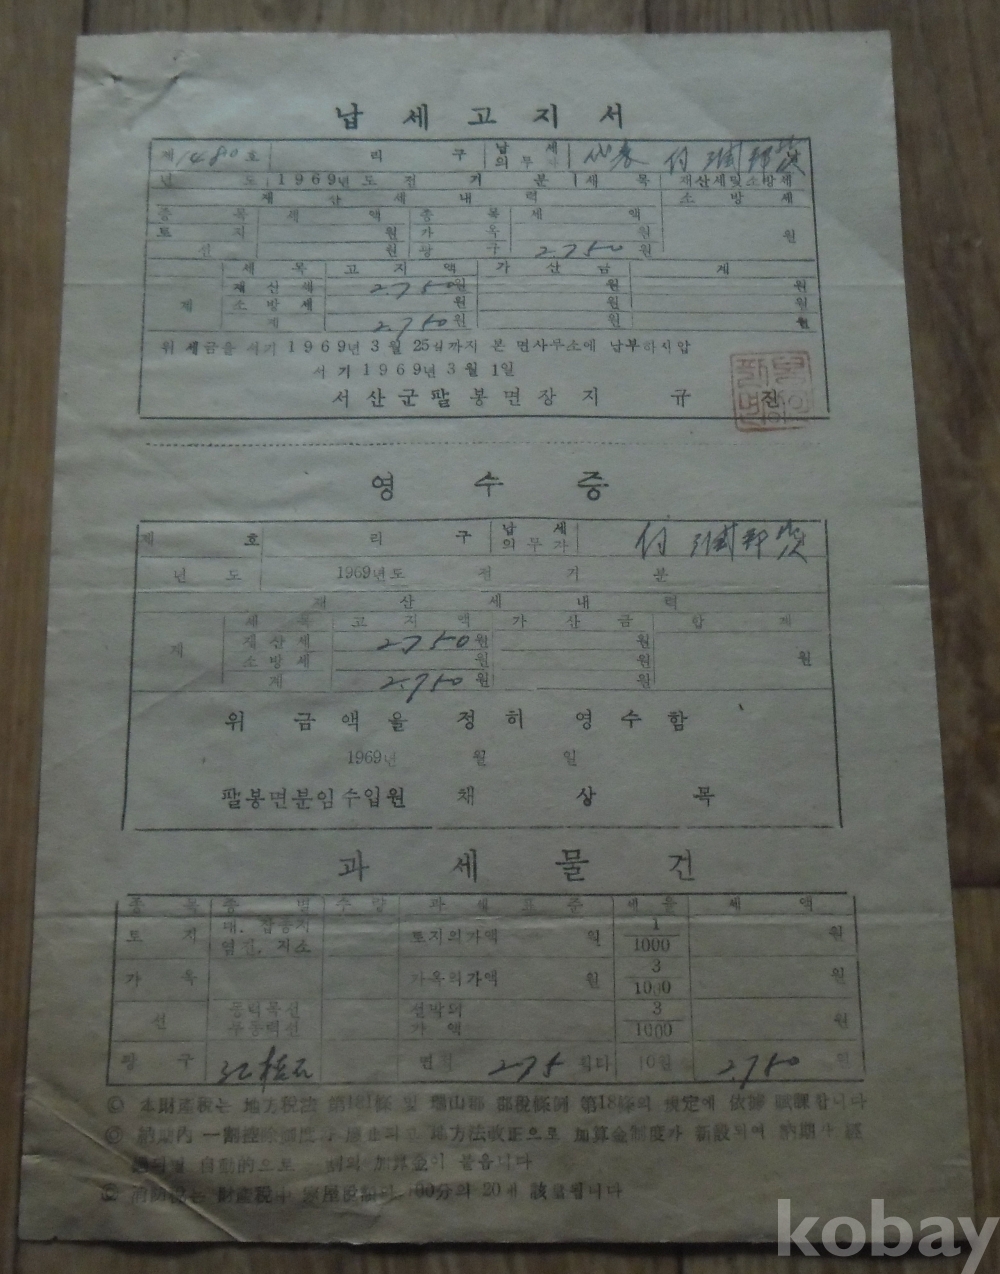 납세고지서
제1480호 리 구 납세의무자
년도 1969년도 전기분 세목 재산세및소방세
재산세내력 소방세
종목 세액 종목 세액
토지 원 가옥 원 원
선 원 광구 2.750원
세목 고지액 가산금 계
재산세 2.750원 원 원
제 소방세 원 원 원
계 2.750원 원 원
위 세금을 서기 1969년 3월 25일까지 본 면사무소에 납부하십압
서기 1969년 3월 1일
서산군팔봉면장 지 규 진
영수증
제 호 리 구 납세의무자
년도 1969년도 전기분
재산세내력
세목 고지액 가산금 합계
재산세 2750원 원
제 소방세 원 원 원
계 2.750원 원
위 금액을 정히 영수함
1969년 월 일
팔봉면분임수입원 채 상 목
과세물건
종목 종별 수량 과세표준 세율 세액
토지 대. 잡종지 염전. 지소 토지의가액 원 1/1000 원
가옥 가옥의가액 원 3/1000 원
선 동력목선 무동력선 선박의 가액 3/1000 원
광구 면적 275 10원 2.750 원
◎ 本財産税는 地方税法 第181條 및 瑞山郡 郡税條例 第18條의 規定에 依據 賦課합니다
地方法改正으로 加算金制度가 新設되여 納期가 經
自動的으로 加算金이 붙읍니다
財産税中 家屋税額의 100分의 20에 該當됩니다
kobay